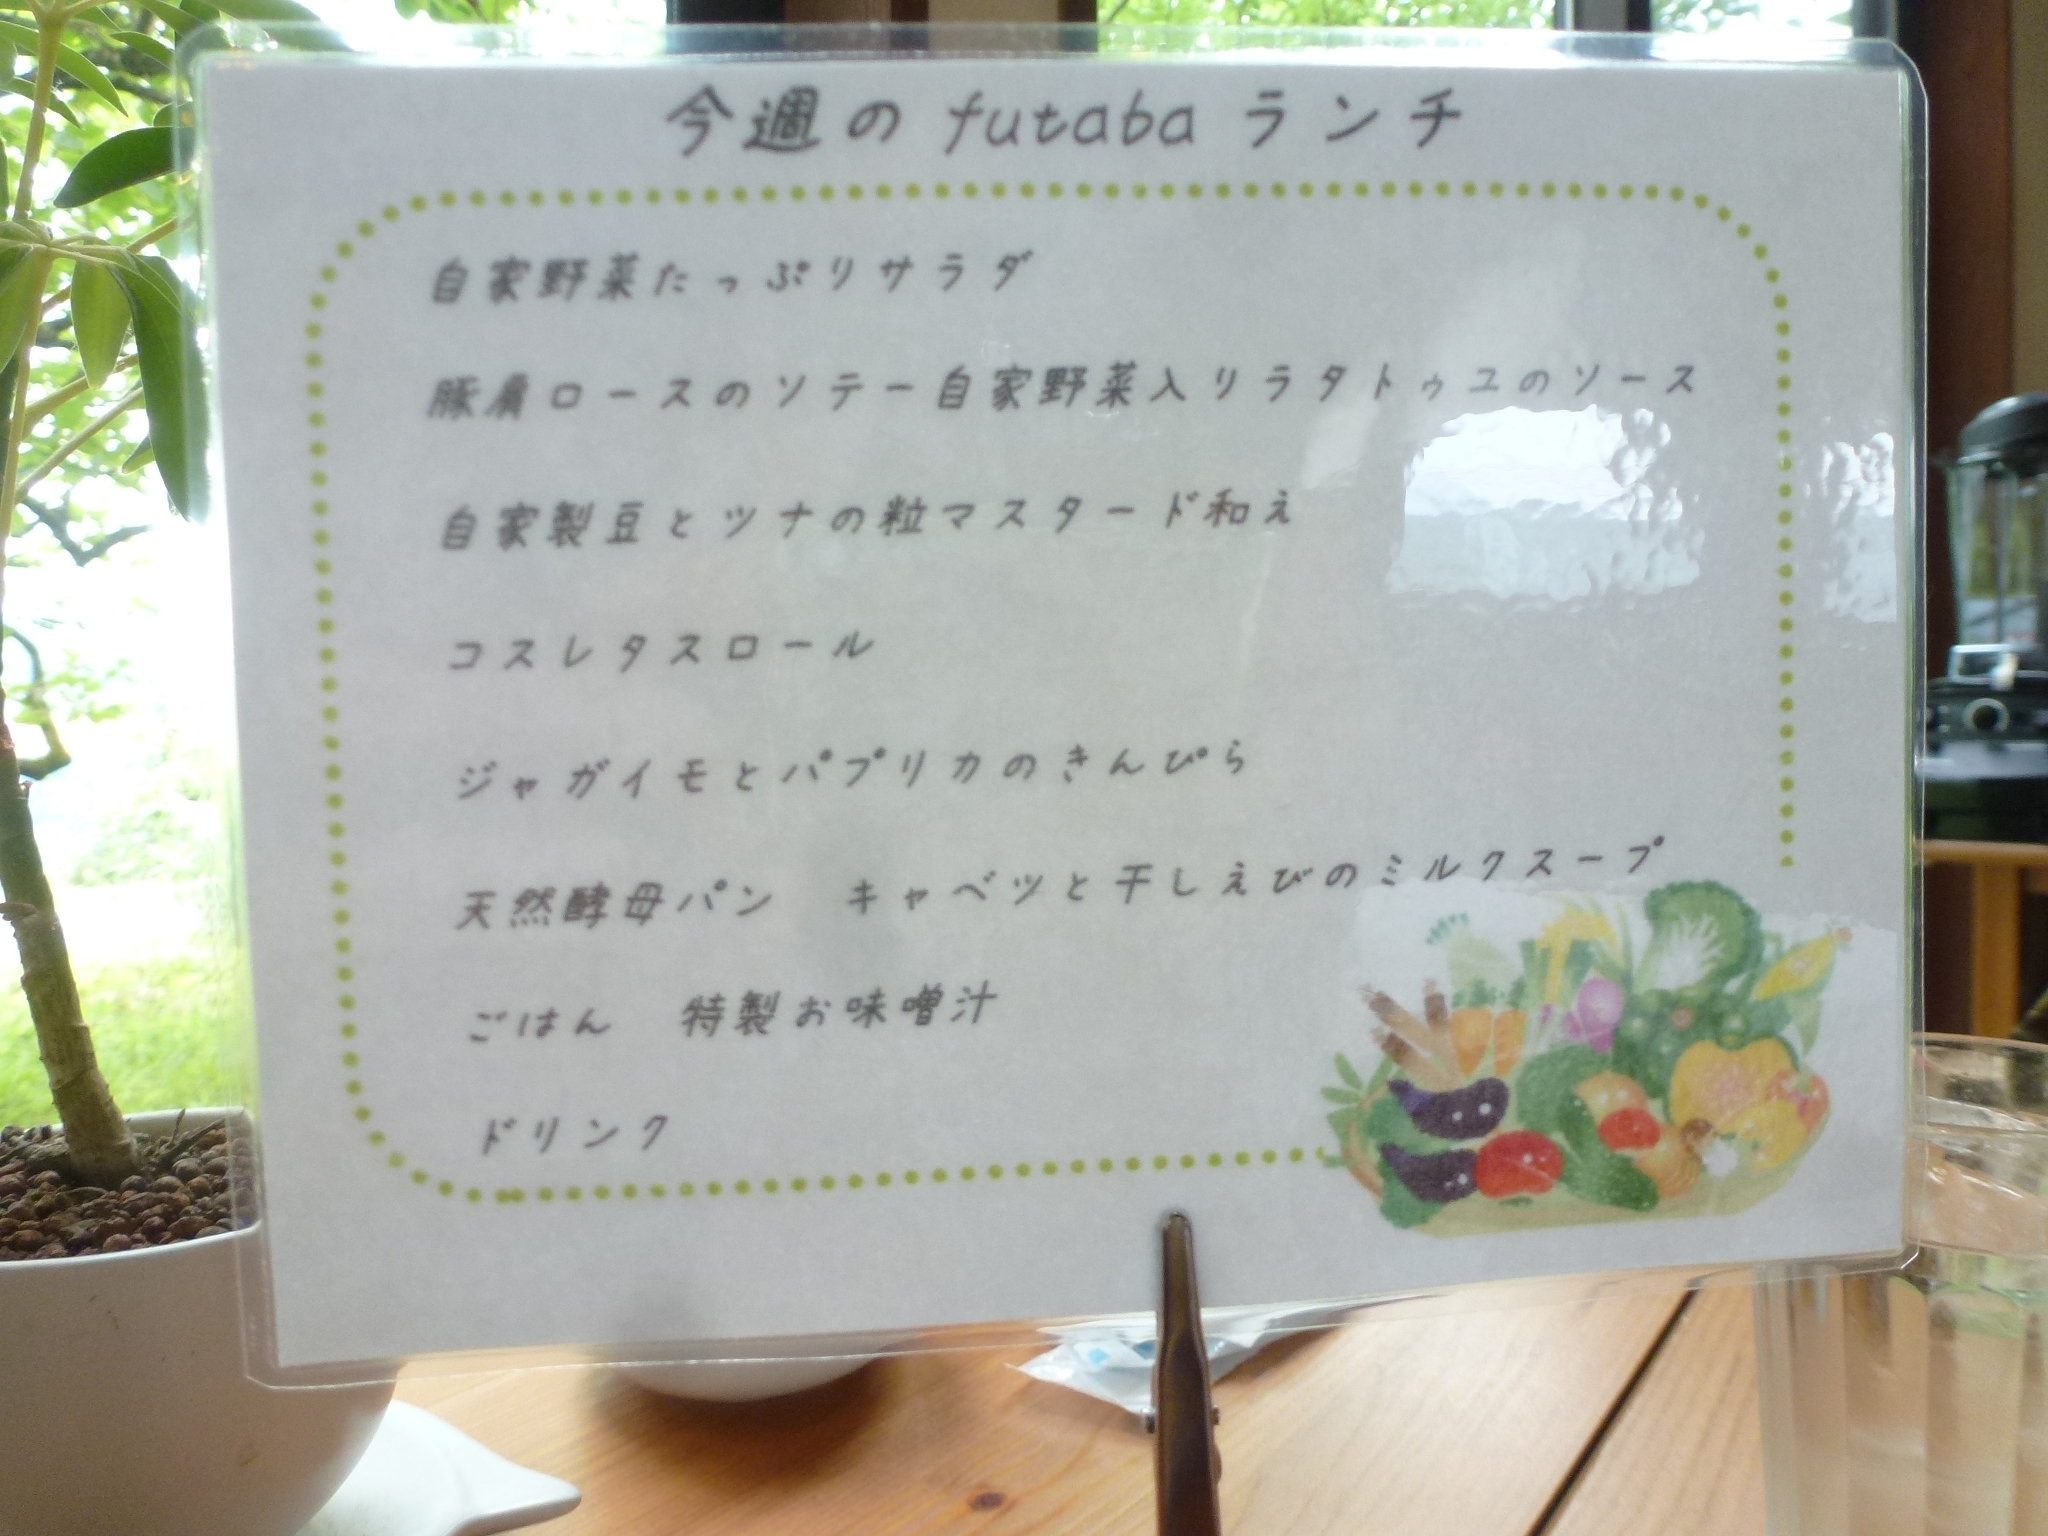 今週の futaba ランチ
自家野菜たっぷりサラダ
豚肩ロースのソテー自家野菜入りラタトゥユのソース
自家製豆とツナの粒マスタード和え
コスレタスロール
ジャガイモとパプリカのきんぴら
天然酵母パン　キャベツと干しえびのミルクスープ
ごはん　特製お味噌汁
ドリンク